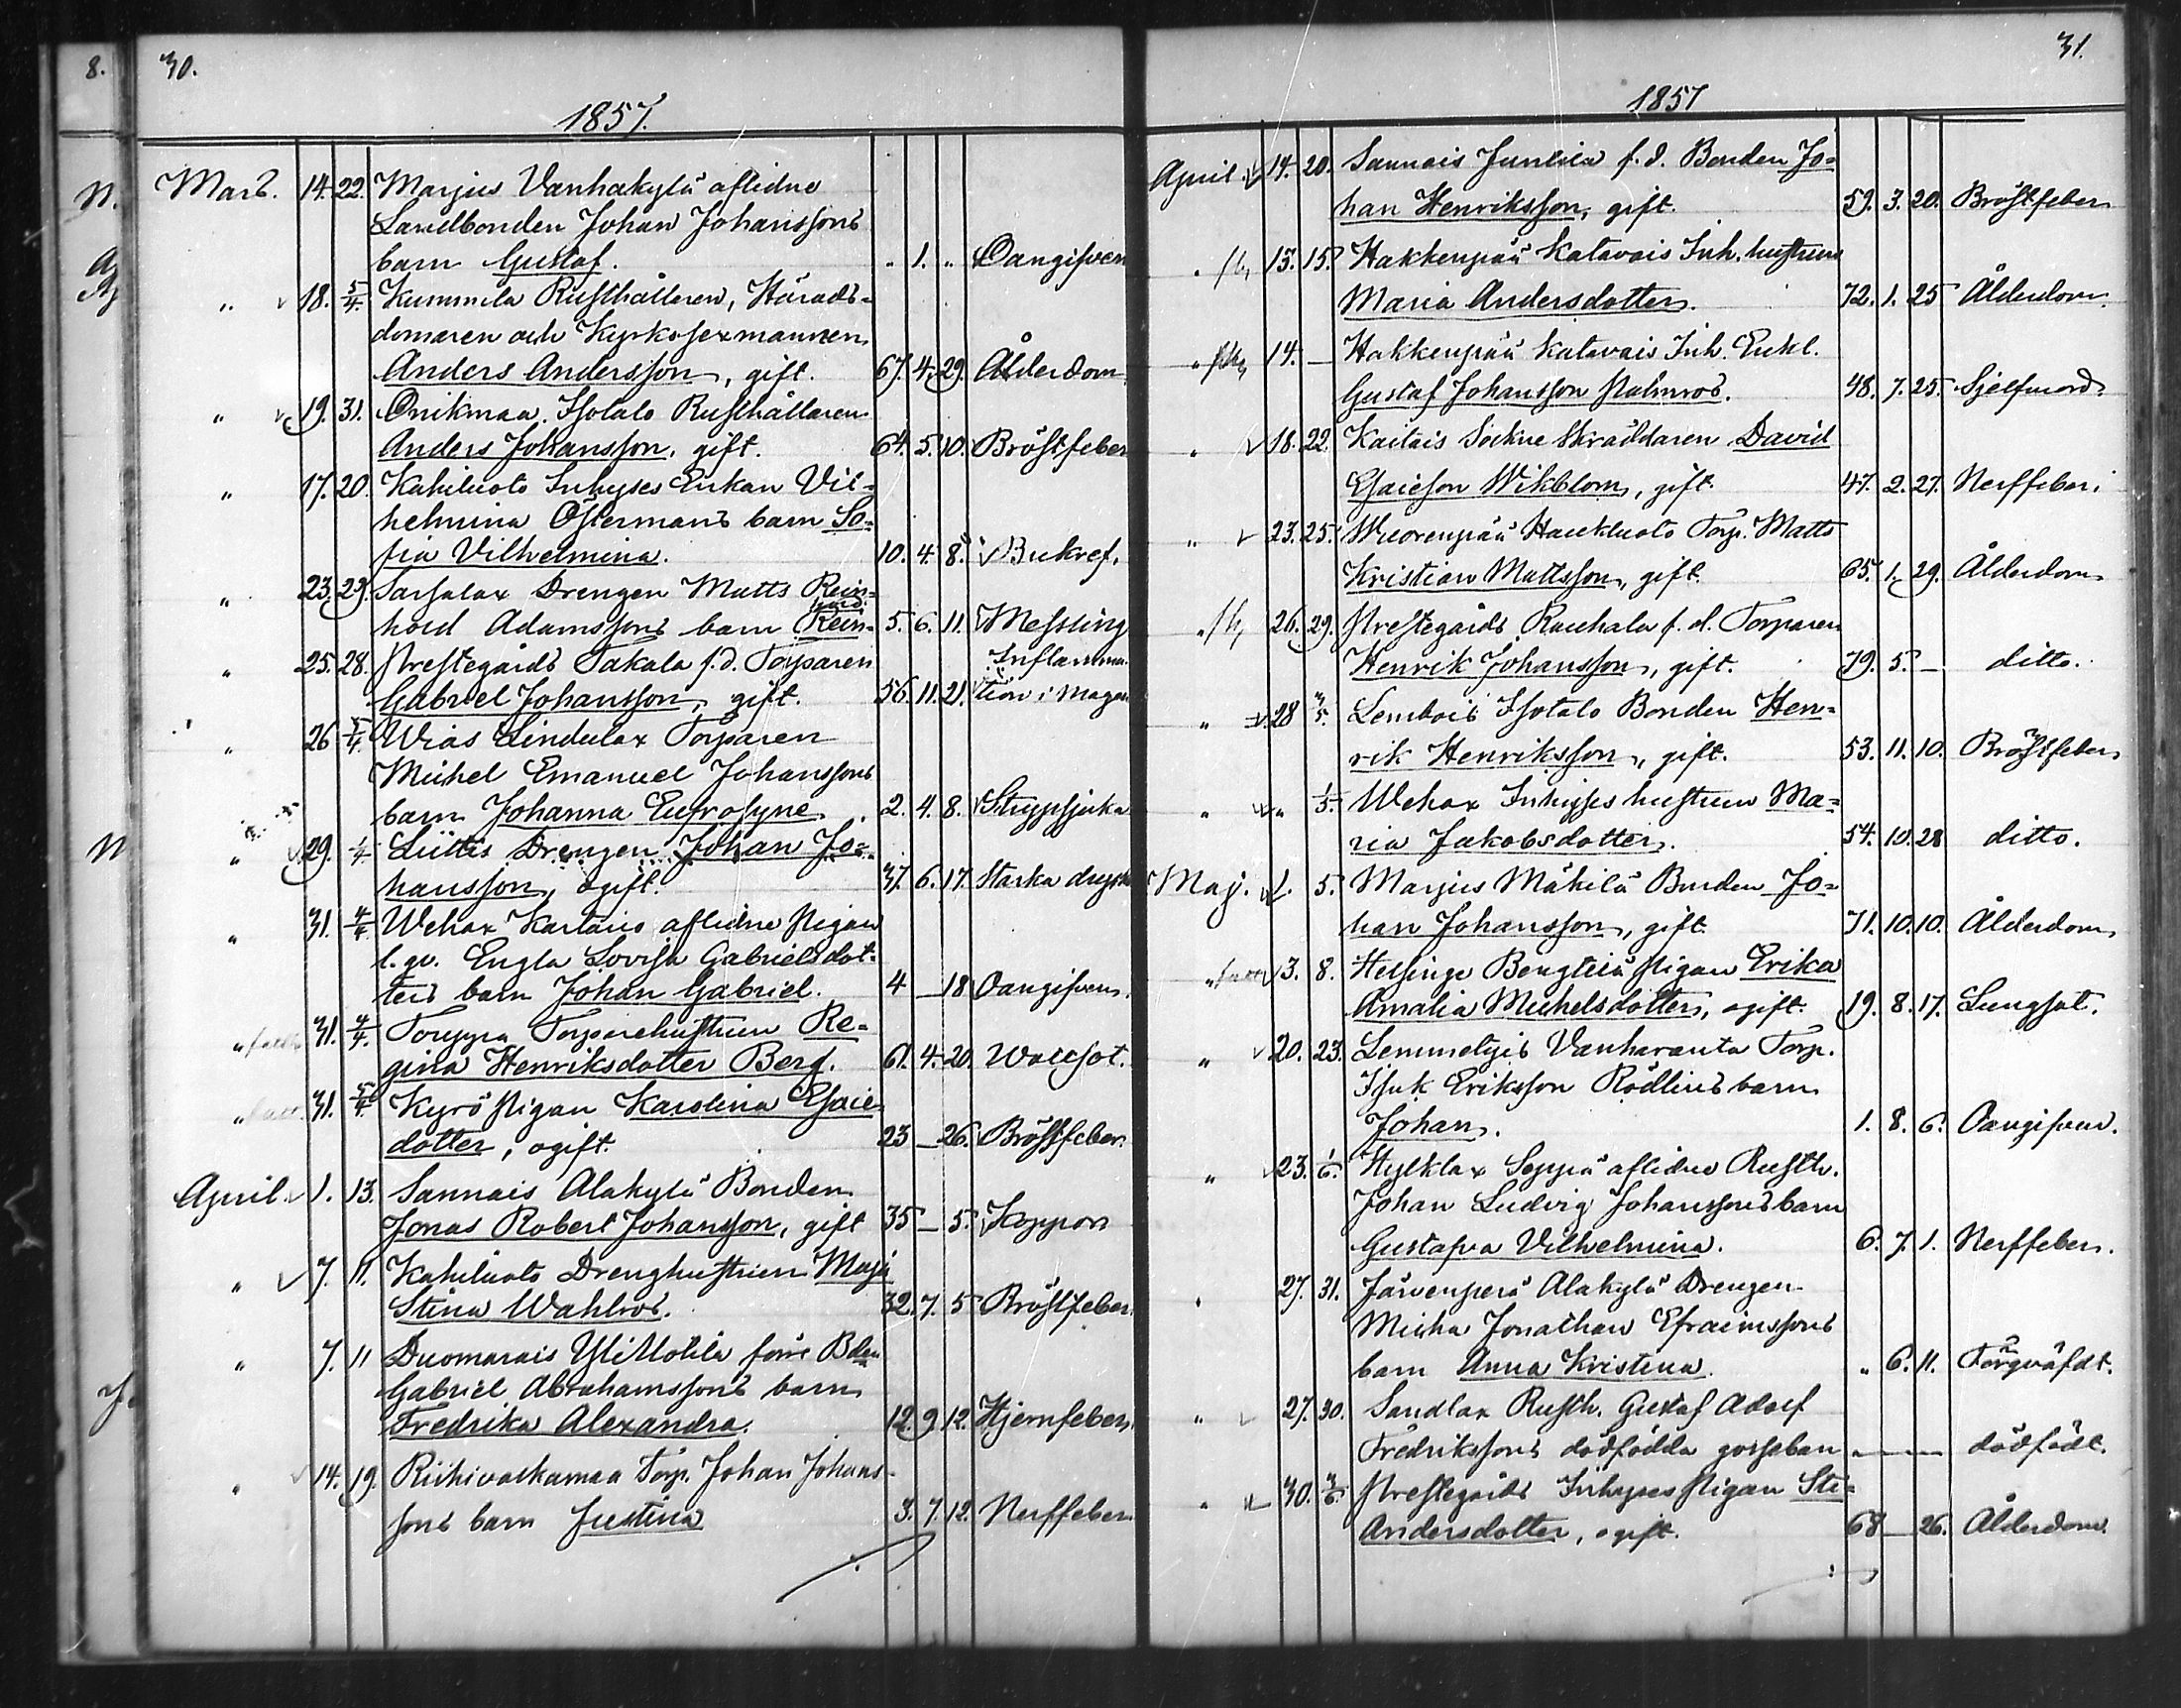 30.
1857.
Mars. 14. 22. Marjus Vanhakylä aflidne
Landbonden Johan Johanssons
barn Gustaf. " 1. " Oangifven
" 18. 5/4. Kummila Rusthållaren, Härads-
domaren och Kyrkosexmannen
Anders Andersson, gift. 67. 4. 29. Ålderdom
" 19. 31. Onikmaa Isotalo Rusthållaren
Anders Johansson, gift. 64. 5. 10. Bröstfeber
" 17. 20. Kahiluoto Inhyses Enkan Vil-
helmina Östermans barn So-
fia Vilhelmina. 10. 4. 8. Bukref.
" 23. 29. Sarsalax Drengen Matts Rein-
hold Adamssons barn Rein- hard. 5. 6. 11. Messling
" 25. 28. Prestegårds Takala f.d. Torparen Inflamma-
Gabriel Johansson, gift. 56. 11. 21. tion i magen
" 26 5/4. Wias Lindulax Torparen
Michel Emanuel Johanssons
barn Johanna Eufrosyne. 2. 4. 8. Strypsjuka
" 29. 1/4. Liittis Drengen Johan Jo-
hansson, ogift. 37. 6. 17. Starka
" 31. 4/4. Wehax Kartano aflidne Pigan
l. qv. Engla Lovisa Gabrielsdot-
ters barn Johan Gabriel. 4 — 18 Oangifven.
" 31. 4/4. Torppa Torparehustrun Re-
gina Henriksdotter Berg. 61. 4. 20. Wattsot.
" 31. 5/4. Kyrö Pigan Karolina Esaie
dotter, ogift. 23 — 26. Bröstfeber.
April. 1. 13. Sannais Alakylä Bonden
Jonas Robert Johansson, gift 35 — 5. Koppor
" 7. 11. Kahiluoto Drenghustrun Maja
Stina Wahlros. 32. 7. 5 Bröstfeber.
" 7. 11 Duomarais Bdn
Gabriel Abrahamssons barn
Fredrika Alexandra. 12. 9. 12. Hjernfeber.
" 14. 19. Riihivalkamaa Torp. Johan Johans-
sons barn Justina 3. 7. 12. Nerffeber.
31.
1857
April. 14. 20. Sannais Junnila f.d. Bonden Jo-
han Henriksson, gift. 59. 3. 20. Bröstfeber
" 13. 15. Hakkenpää Katavais Inh. hustrun
Maria Andersdotter. 72. 1. 25 Ålderdom.
" 14. — Hakkenpää Katavais Inh. Enkl.
Gustaf Johansson Palmros. 48. 7. 25. Sjelfmord.
" 18. 22. Kaitais Sockne Skräddaren David
Esaieson Wikblom, gift. 47. 2. 27. Nerffeber.
" 23. 25. Wuorenpää Haukluoto Torp. Matts
Kristian Mattsson, gift. 65. 1. 29. Ålderdom
" 26. 29. Prestegårds Rauhala f.d. Torparen
Henrik Johansson, gift. 79. 5. — ditto.
" 28 3/5. Lembois Isotalo Bonden Hen-
rik Henriksson, gift. 53. 11. 10. Bröstfeber
" " 1/5. Wehax Inhyses hustrun Ma-
ria Jakobsdotter. 54. 10. 28 ditto.
Maj. 1. 5. Marjus Mäkilä Bonden Jo-
han Johansson, gift. 71. 10. 10. Ålderdom
" 3. 8. Helsinge Bengtilä Pigan Erika
Amalia Michelsdotter, ogift. 19. 8. 17. Lungsot.
" 20. 23. Lemmetyis Vanharanta Torp.
Isak Eriksson Rödlins barn
Johan. 1. 8. 6. Oangifven.
" 23. 1/6. Hylklax Seppä aflidne Rusth.
Johan Ludvig Johanssons barn
Gustafva Vilhelmina. 6. 7. 1. Nerffeber.
" 27. 31. Järvenperä Alakylä Drengen
Micha Jonathan Efraimssons
barn Anna Kristina. " 6. 11. Förqväfdt.
" 27. 30. Sandlax Rusth. Gustaf Adolf
Fredrikssons dödfödda gossebarn — — — dödfödt.
" 30. 3/6. Prestegårds Inhyses Pigan Sti-
Andersdotter, ogift. 68 — 26. Ålderdom.